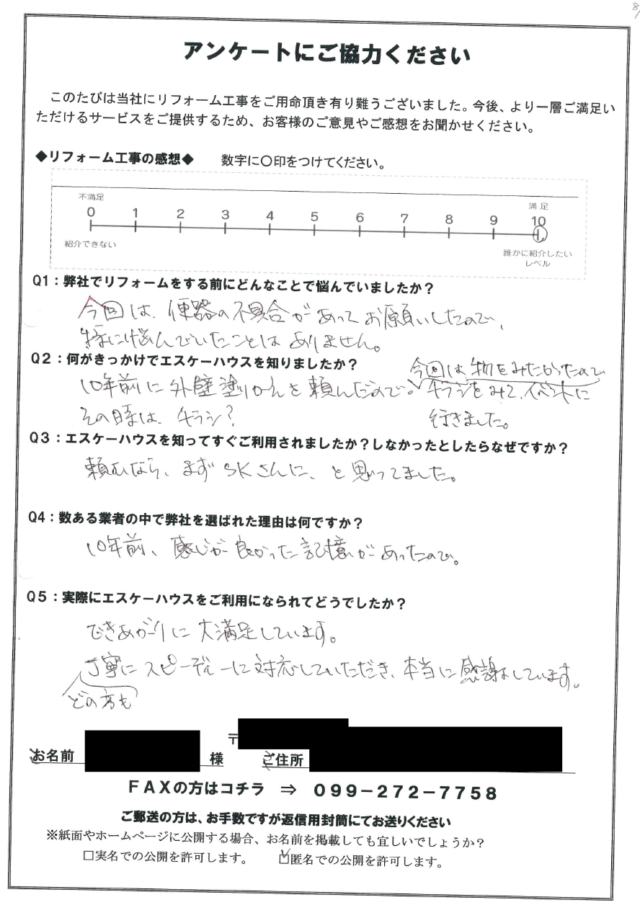 8/
アンケートにご協力ください
このたびは当社にリフォーム工事をご用命頂き有り難うございました。今後、より一層ご満足い
ただけるサービスをご提供するため、お客様のご意見やご感想をお聞かせください。
◆リフォーム工事の感想◆ 数字に〇印をつけてください。
不満足 満足
0 1 2 3 4 5 6 7 8 9 10
紹介できない 誰かに紹介したい
レベル
Q1:弊社でリフォームをする前にどんなことで悩んでいましたか？
今回は、便器の不具合があってお願いしたので、
特に悩んでいたことはありません。
Q2:何がきっかけでエスケーハウスを知りましたか？
10年前に外壁塗りかえを頼んだので。
その時は、チラシ？
今回は物をみたかったので
チラシをみて、イベントに
行きました。
Q3:エスケーハウスを知ってすぐご利用されましたか？しなかったとしたらなぜですか？
頼むなら、まずSKさんに、と思ってました。
Q4:数ある業者の中で弊社を選ばれた理由は何ですか？
10年前、感じが良かった記憶があったので。
Q5:実際にエスケーハウスをご利用になられてどうでしたか？
できあがりに大満足しています。
丁寧にスピーディーに対応していただき、本当に感謝しています。
どの方も
〒
お名前 様 ご住所
FAXの方はコチラ ⇒ 099-272-7758
ご郵送の方は、お手数ですが返信用封筒にてお送りください
※紙面やホームページに公開する場合、お名前を掲載しても宜しいでしょうか？
□実名での公開を許可します。 ☑匿名での公開を許可します。